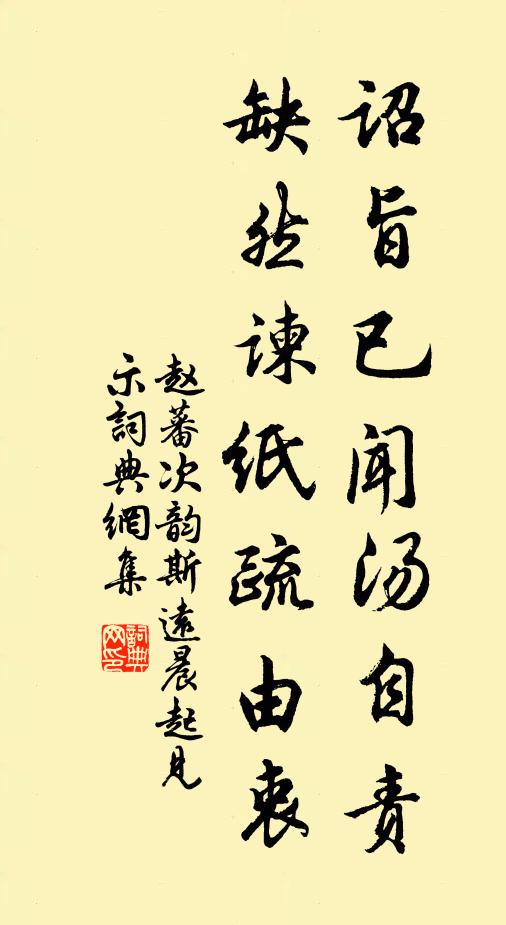 诏旨已闻汤自责
缺然谏纸疏由衷
赵蕃次韵斯远晨起见
示词典網集
詞典
网印